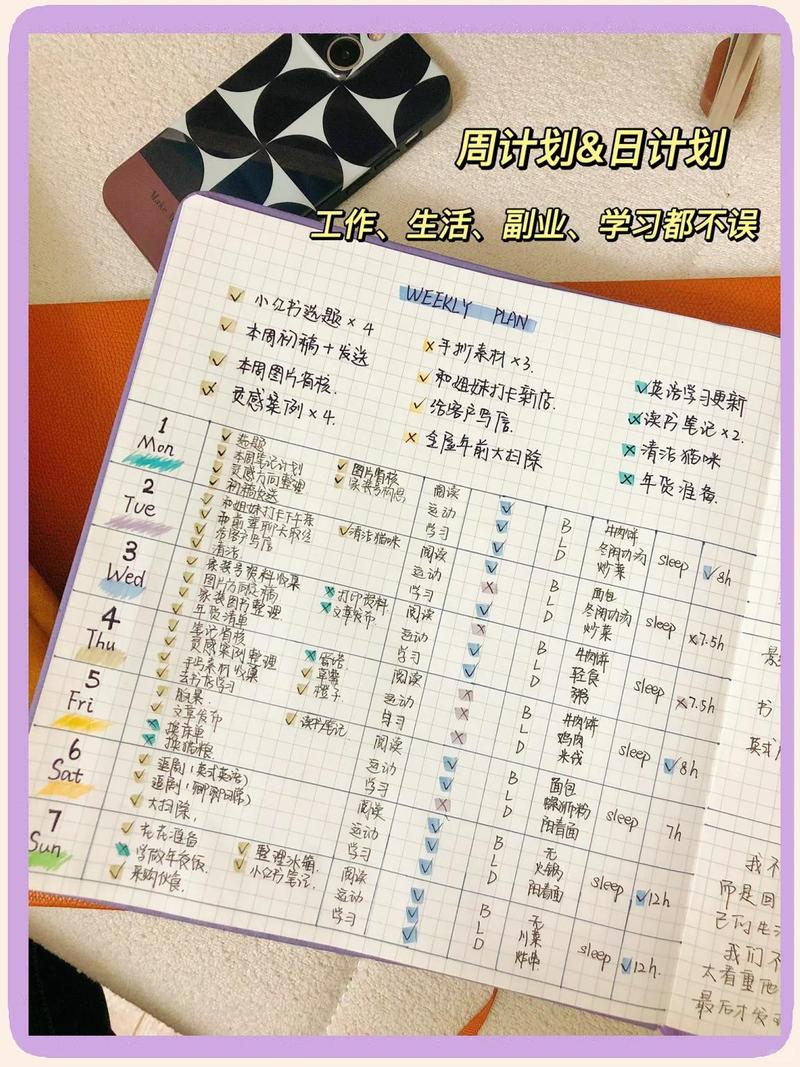 周计划&日计划
工作、生活、副业、学习都不误
Make
WEEKLY PLAN
✓ 小红书选题×4
✓ 本周初稿+发送
✓ 本周图片审核.
× 灵感案例×4.
× 手折素材×3.
✓ 和姐妹打卡新店.
✓ 给客户写信.
× 全屋年前大扫除
✓ 英语学习更新
× 读书笔记×2.
× 清洁猫咪
× 年货准备.
1
Mon
✓ 选题
✓ 本周笔记计划
✓ 灵感方向整理
✓ 初稿发送
✓ 图片审核
✓ 家装号构思
阅读 ✓
运动 ✓
学习 ✓
B 牛肉饼
L 冬阴功汤
D 炒菜
sleep ✓8h
2
Tue
✓ 和姐妹打卡下午茶
✓ 和前辈聊天取经
✓ 给客户写信
✓ 清洁.
✓ 清洁猫咪
阅读 ✓
运动 ×
学习 ✓
B 面包
L 冬阴功汤
D 炒菜
sleep ×7.5h
3
Wed
✓ 家装号资料收集
✓ 图片方向定稿
✓ 家装图书整理
✓ 年货清单
× 打印资料
× 文章发布
阅读 ×
运动 ✓
学习 ✓
B 牛肉饼
L 轻食
D 粥
sleep ×7.5h
4
Thu
✓ 笔记审核
✓ 灵感案例整理
✓ 手写素材收集
✓ 去书店学习
✓ 草莓
✓ 橙子
阅读 ×
运动 ×
学习 ×
B 牛肉饼
L 鸡肉
D
sleep ✓8h
5
Fri
✓
✓ 文章发布
× 换床单
× 换猫粮
✓ 读书笔记
阅读 ✓
运动 ✓
学习 ×
B 面包
L 螺蛳粉
D 阳春面
sleep 7h
6
Sat
✓ 追剧(英式英语)
✓ 追剧(聊聊日常)
✓ 大扫除.
阅读 ✓
运动 ✓
学习 ✓
B 无
L 火锅
D 阳春面
sleep ✓12h
7
Sun
✓ 花花准备
× 学做年夜饭.
✓ 采购伙食.
✓ 整理冰箱.
✓ 小红书笔记.
阅读 ✓
运动 ✓
学习 ✓
B 无
L 川菜
D 炸串.
sleep ✓12h.
书
英式
我不
而是因
己的生
我们不
太看重他
最后才发